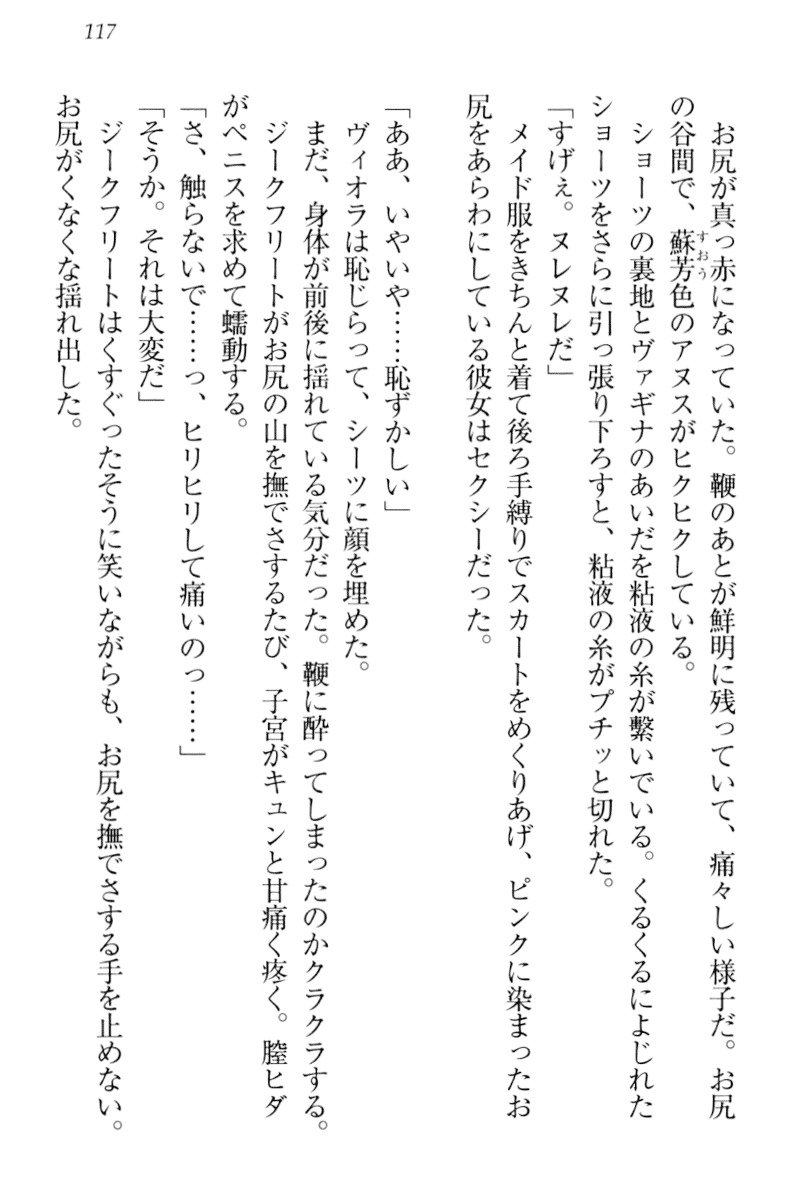 117
お尻が真っ赤になっていた。鞭のあとが鮮明に残っていて、痛々しい様子だ。お尻
の谷間で、蘇芳色のアヌスがヒクヒクしている。
すおう
ショーツの裏地とヴァギナのあいだを粘液の糸が繋いでいる。くるくるによじれた
ショーツをさらに引っ張り下ろすと、粘液の糸がプチッと切れた。
「すげぇ。ヌレヌレだ」
メイド服をきちんと着て後ろ手縛りでスカートをめくりあげ、ピンクに染まったお
尻をあらわにしている彼女はセクシーだった。
「ああ、いやいや……恥ずかしい」
ヴィオラは恥じらって、シーツに顔を埋めた。
まだ、身体が前後に揺れている気分だった。鞭に酔ってしまったのかクラクラする。
ジークフリートがお尻の山を撫でさするたび、子宮がキュンと甘痛く疼く。膣ヒダ
がペニスを求めて蠕動する。
「さ、触らないで……っ、ヒリヒリして痛いのっ……」
「そうか。それは大変だ」
ジークフリートはくすぐったそうに笑いながらも、お尻を撫でさする手を止めない。
お尻がくなくな揺れ出した。